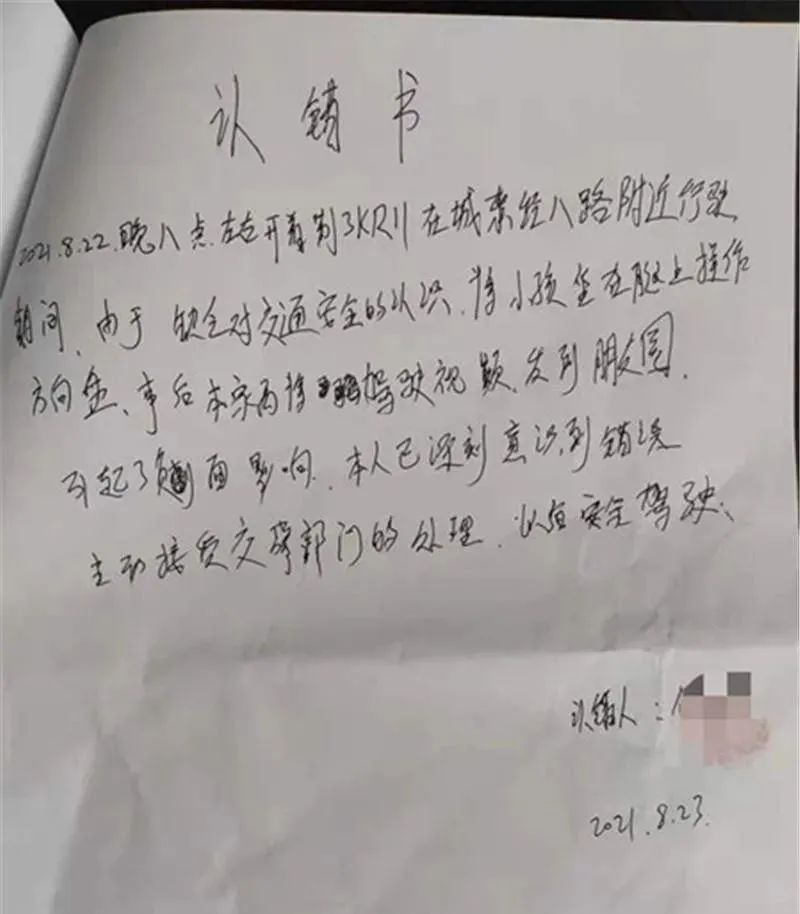 认错书
2021.8.22.晚八点左右开着制3KR11在城东经八路附近行驶
期间,由于缺乏对交通安全的认识,将小孩坐在腿上操作
方向盘、事后本家再将驾驶视频,发到朋友圈,
引起了负面影响,本人已深刻意识到错误
主动接受交警部门的处理,以后安全驾驶、
认错人:
2021.8.23.